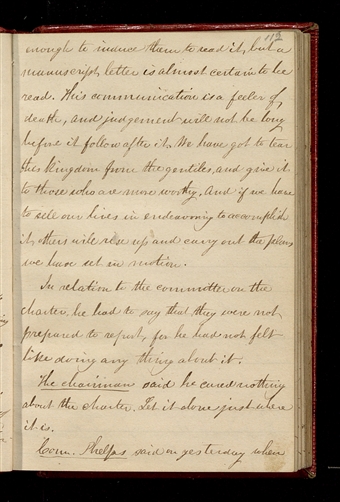 113
enough to induce them to read it, but a
manuscript letter is almost certain to be
read. This communication is a feeler of
death, and judgement will not be long
before it follow after it. We have got to tear
this kingdom from the gentiles, and give it
to those who are more worthy, and if we have
to sell our lives in endeavoring to accomplish
it, others will rise up and carry out the plans
we have set in motion.
In relation to the committee on the
charter, he had to say that they were not
prepared to report, for he had not felt
like doing any thing about it.
The chairman said he cared nothing
about the charter. Let it alone just where
it is.
Coun. Phelps said on yesterday when